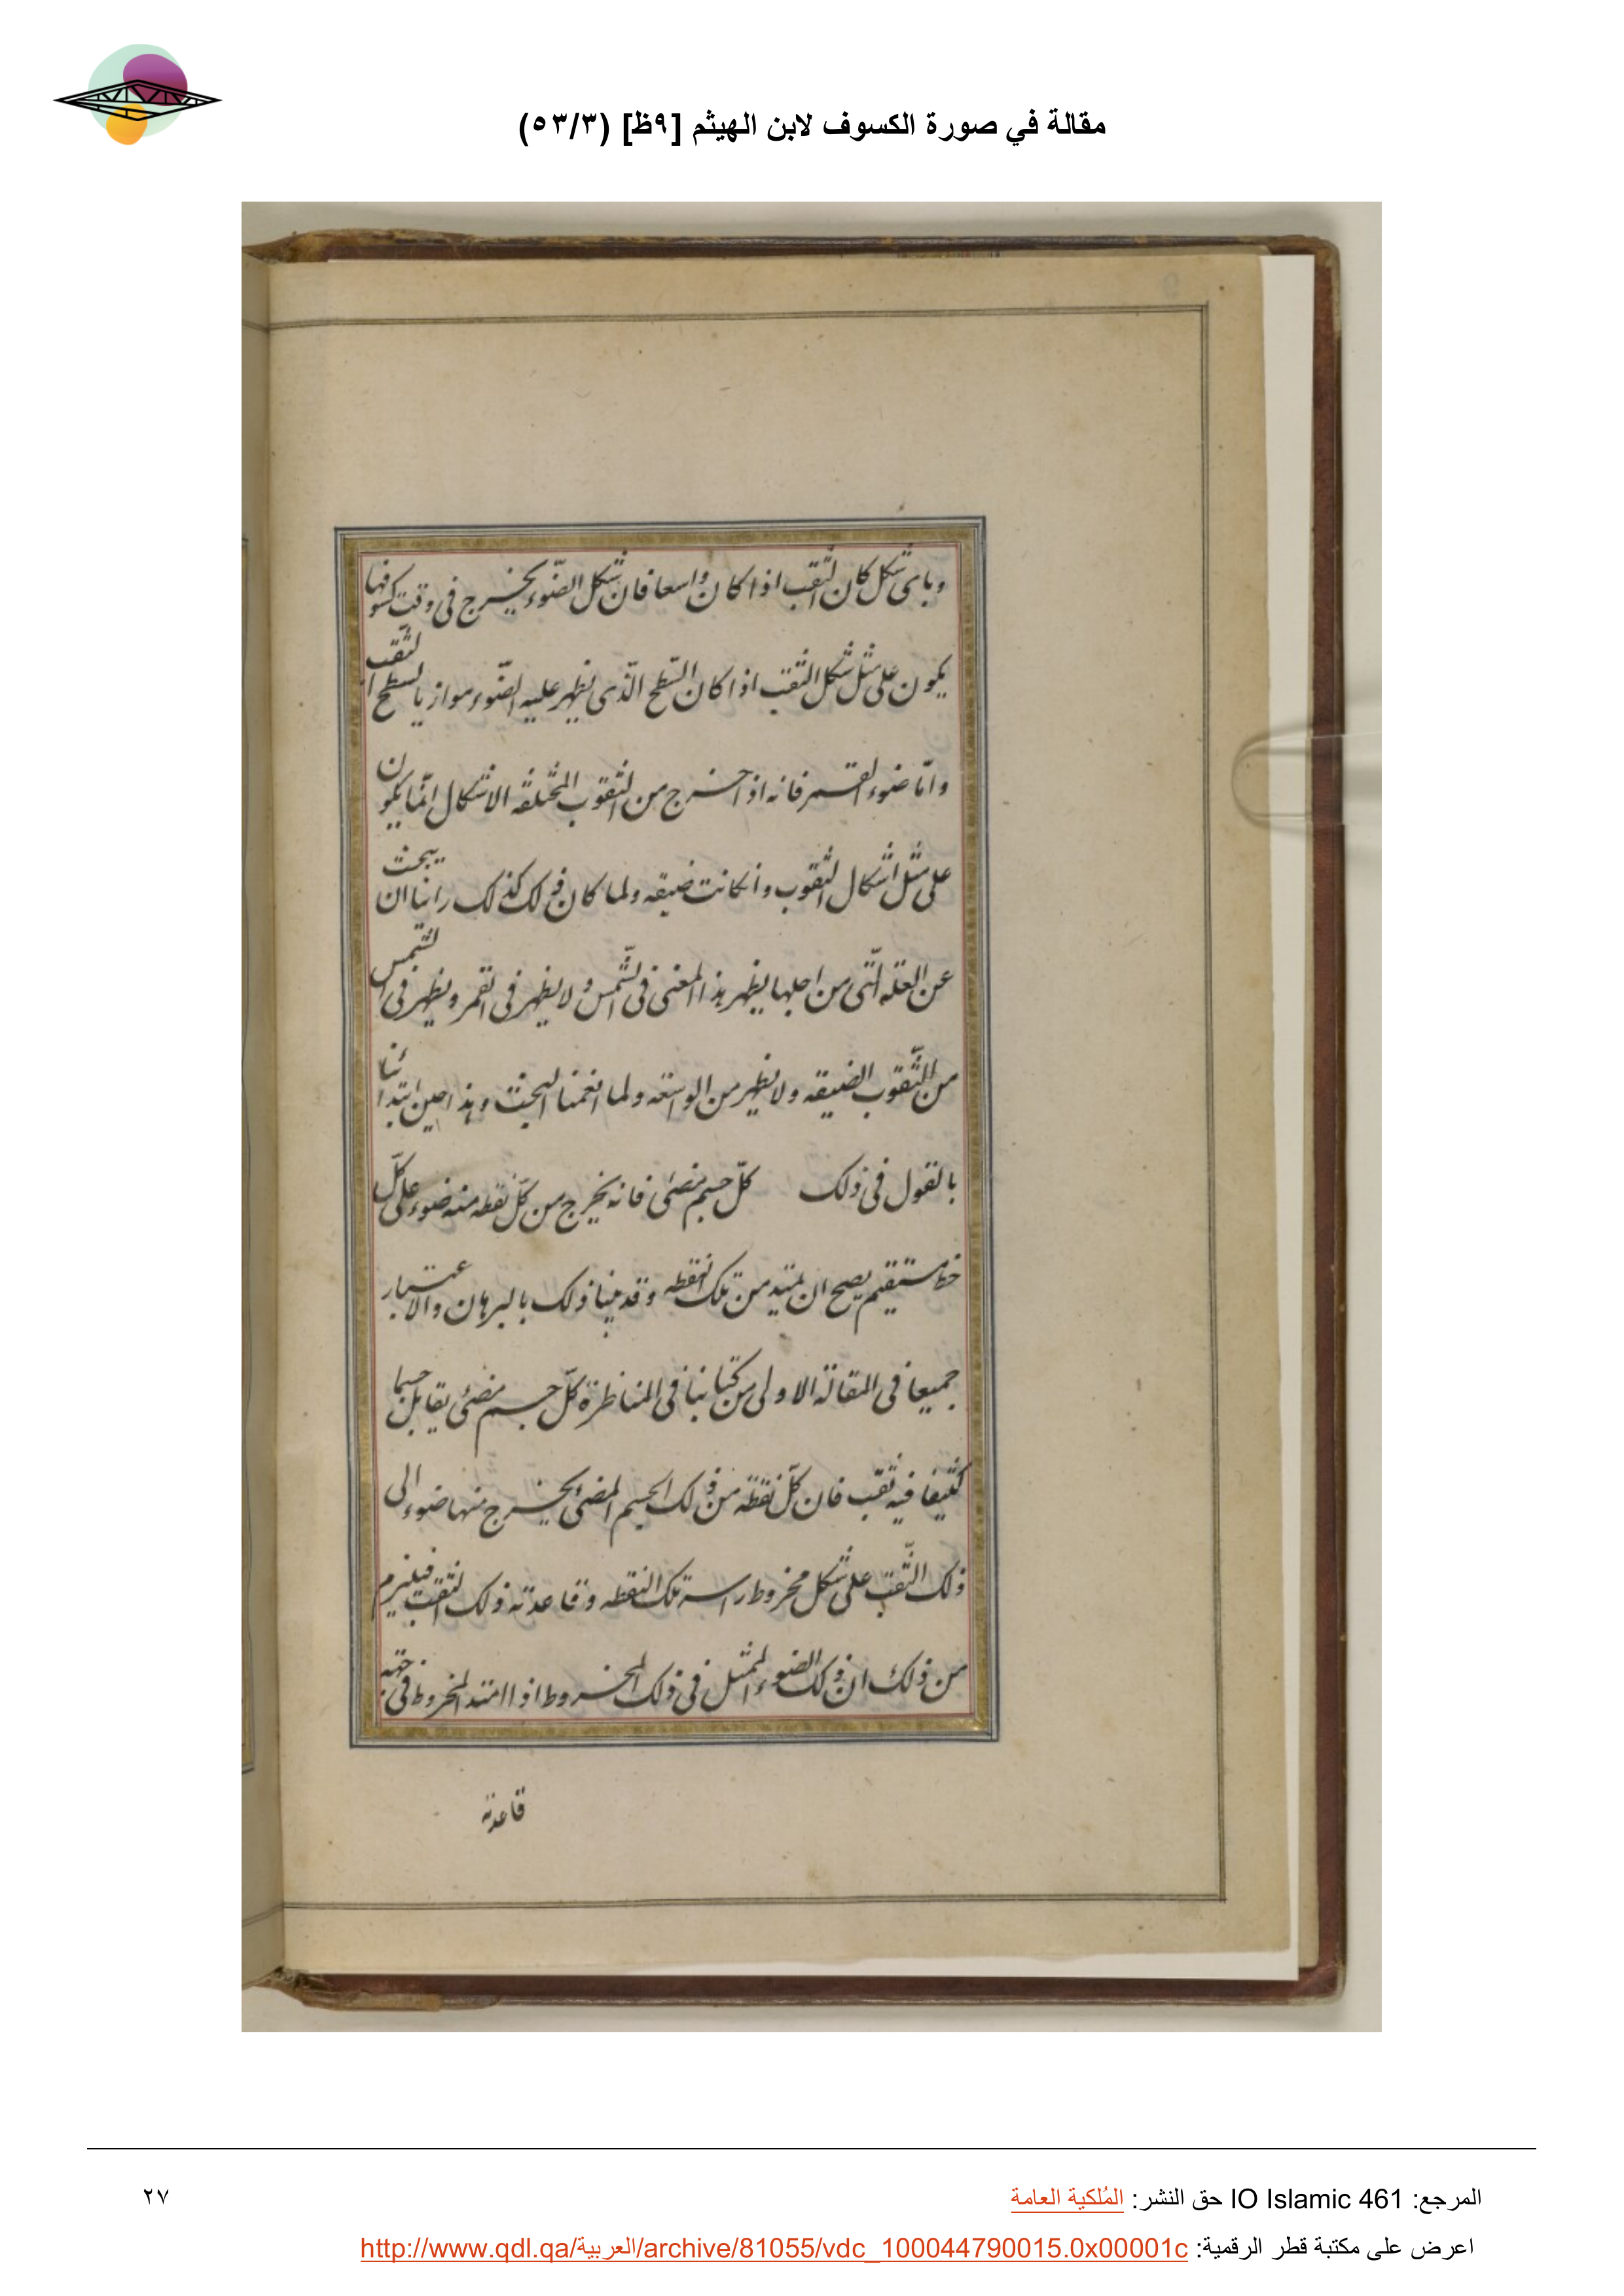 مقالة في صورة الكسوف لابن الهيثم [٩ظ] (٥٣/٣)
وبای شكل كان الثقب اذا كان واسعا فان شكل الضّوء يخرج فى وقت كسوفها
يكون على مثل شكل الثقب اذا كان السّطح الّذى يظهر عليه الضّوء موازيا لسطح الثّقب
وامّا ضوء القمر فانه اذا خرج من الثقوب المختلفه الاشكال انّما يكون
على مثل اشكال الثقوب وان كانت ضيقه ولما كان ذلك كذلك راينا ان يبحث
عن العلّه الّتى من اجلها يظهر هذا المعنى فى الشّمس ولا يظهر فى القمر ويظهر فى الشّمس
من الثّقوب الضيقه ولا يظهر من الواسعه ولما انعمنا البحث وهذا حين ابتدائنا
بالقول فى ذلك كلّ جسم مضئ فانه يخرج من كلّ نقطه منه ضوء على كلّ
خط مستقيم يصح ان يمتد من تلك النقطه وقد بينا ذلك بالبرهان والاعتبار
جميعا فى المقالة الاولى من كتابنا فى المناظرة كلّ جسم مضئ يقابل جسما
كثيفا فيه ثقب فان كلّ نقطة من ذلك الجسم المضئ يخرج منها ضوء الى
ذلك الثّقب على شكل مخروط راسه تلك النقطه وقاعدته ذلك الثقب فيلزم
من ذلك ان ذلك الضوء الممثل فى ذلك المخروط اذا امتد المخروط فى جهة
قاعدته
المرجع: IO Islamic 461 حق النشر: المُلكية العامة
٢٧
اعرض على مكتبة قطر الرقمية: http://www.qdl.qa/العربية/archive/81055/vdc_100044790015.0x00001c